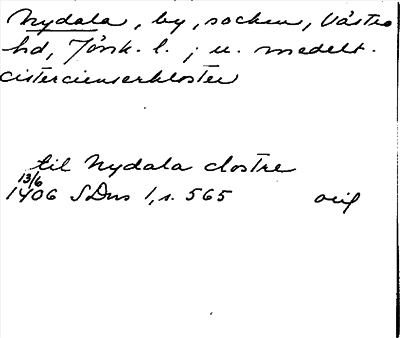 Nydala, by, socken, Västra
hd, Jönk. l.; u. medelt.
cistercienserkloster
til Nydala clostre
13/6
1406 SDns 1, s. 565 orig